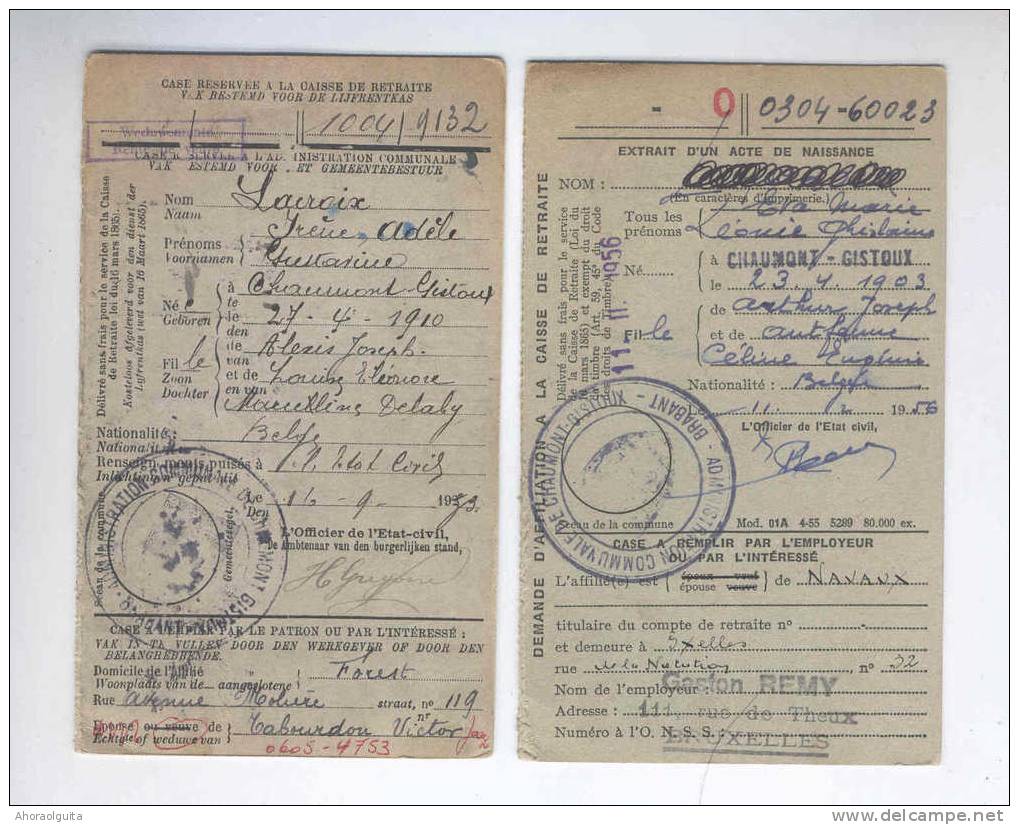 CASE RESERVÉE A LA CAISSE DE RETRAITE
VAK BESTEMD VOOR DE LIJFRENTKAS
1004/9132
CASE RESERVÉE A L'ADMINISTRATION COMMUNALE
VAK BESTEMD VOOR HET GEMEENTEBESTUUR
Délivré sans frais pour le service de la Caisse
de Retraite loi du 16 mars 1865):
Kosteloos afgeleverd voor den dienst der
Lijfrentkas (wet van 16 Maart 1865).
Nom
Naam
Lacroix
Prénoms
Voornamen
Irène, Adèle
Gustavine
Né
Geboren
à Chaumont-Gistoux
te
le 27-4-1910
den
Fil le
Zoon
Dochter
de Alexis Joseph.
van
et de Louise Eléonore
en van
Marcelline Delaby
Nationalité:
Nationalit
Belge
Renseignements puisés à
Inlichtingen geput uit
Etat Civil
Le
Den
16-9-1953.
L'Officier de l'Etat-civil,
De Ambtenaar van den burgerlijken stand,
Sceau de la commune
Gemeentezegel,
ADMINISTRATION COMMUNALE DE CHAUMONT GISTOUX
CASE A REMPLIR PAR LE PATRON OU PAR L'INTÉRESSÉ :
VAK IN TE VULLEN DOOR DEN WERKGEVER OF DOOR DEN
BELANGHEBBENDE.
Domicile de l'affilié
Woonplaats van de aangeslotene
Forest
Rue avenue Molière straat, no 119
nr
Epouse ou veuve de
Echtgte of weduwe van
Tabourdon Victor
0605-4753
- 0 0304-60023
EXTRAIT D'UN ACTE DE NAISSANCE
NOM :
(En caractères d'imprimerie.)
Tous les
prénoms
Marie
Léonie Ghislaine
Né
à CHAUMONT-GISTOUX
le 23.4.1903
Fil le
de Arthur Joseph
et de Antoine
Céline Eugénie
Nationalité : Belge
Le 11. 12 1956
L'Officier de l'Etat civil,
DEMANDE D'AFFILIATION A LA CAISSE DE RETRAITE
Délivré sans frais pour le service
de la Caisse de Retraite (Loi du
16 mars 1865) et exempt du droit
de timbre (Art. 59, 45° du Code
des droits de timbre)
11. 11. 1956
ADMINISTRATION COMMUNALE DE CHAUMONT-GISTOUX - BRABANT
Sceau de la commune
Mod. 01A 4-55 5289 80.000 ex.
CASE A REMPLIR PAR L'EMPLOYEUR
OU PAR L'INTÉRESSÉ
L'affilié(e) est
époux veuf
épouse veuve
de NAVAUX
titulaire du compte de retraite n° -
et demeure à Ixelles
rue de la Natation n° 32
Nom de l'employeur : Gaston REMY
Adresse : 111, rue de Theux
Numéro à l'O. N. S. S. : BRUXELLES
Ahoraolguita
delcampe.net